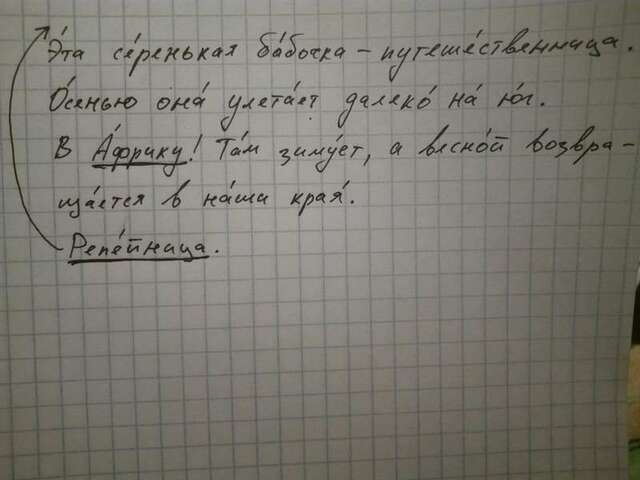 Э́та се́ренькая ба́бочка – путеше́ственница.
О́сенью она́ улета́ет далеко́ на́ юг.
В А́фрику! Та́м зиму́ет, а весно́й возвра-
ща́ется в на́ши края́.
Репе́йница.